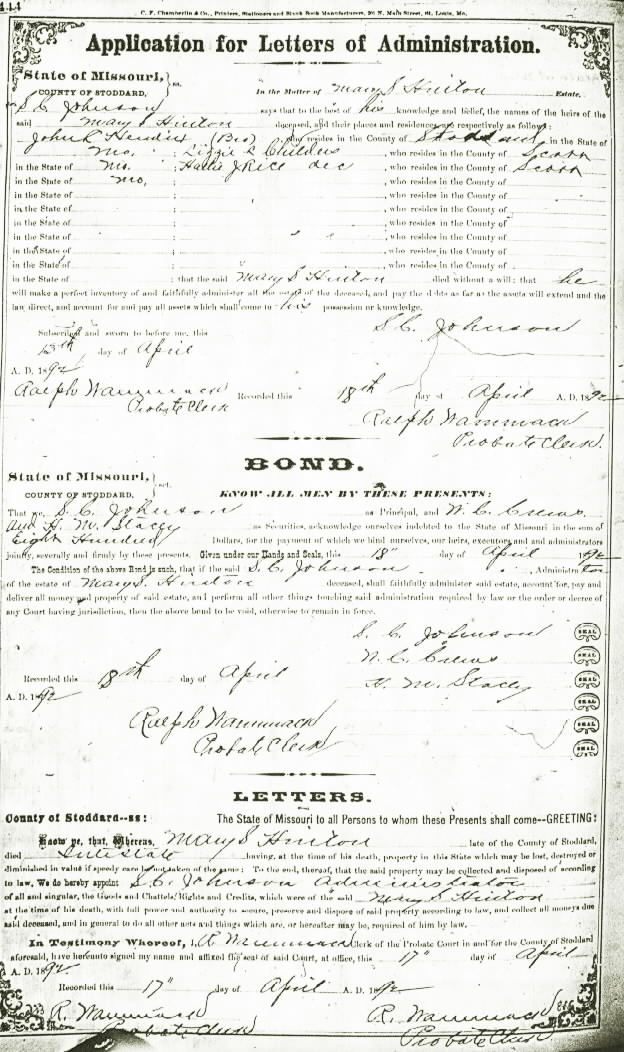 444
C. F. Chamberlin & Co., Printers, Stationers and Blank Book Manufacturers, N. Main Street, St. Louis, Mo.
Application for Letters of Administration.
State of Missouri, } ss.
COUNTY OF STODDARD,
In the Matter of Mary S Hinton Estate.
S. C. Johnson says that to the best of his knowledge and belief, the names of the heirs of the
said Mary S Hinton deceased, and their places and residences are respectively as follows:
John R (Bro) who resides in the County of Stoddard in the State of
Mo. ; Lizzie R Childers , who resides in the County of Scott
in the State of Mo. ; Hattie J Rice dec , who resides in the County of Scott
in the State of Mo, ; , who resides in the County of
in the State of ; , who resides in the County of
in the State of ; , who resides in the County of
in the State of ; , who resides in the County of
in the State of ; , who resides in the County of
in the State of ; , who resides in the County of
in the State of ; , who resides in the County of
in the State of ; that the said Mary S Hinton died without a will: that he
will make a perfect inventory of and faithfully administer all the estate of the deceased, and pay the debts as far as the assets will extend and the
law direct, and account for and pay all assets which shall come to his possession or knowledge.
S. C. Johnson
Subscribed and sworn to before me, this
day of April
A. D. 1892
Ralph Wammack
Probate Clerk
Recorded this 18th day of April A. D. 1892
Ralph Wammack
Probate Clerk
BOND.
State of Missouri, } sct.
COUNTY OF STODDARD,
KNOW ALL MEN BY THESE PRESENTS:
That we, S. C. Johnson as Principal, and W. C. Crews
and H. M. Stacey as Securities, acknowledge ourselves indebted to the State of Missouri in the sum of
Eight Hundred Dollars, for the payment of which we bind ourselves, our heirs, executors and administrators
jointly, severally and firmly by these presents. Given under our Hands and Seals, this 18" day of April 1892
The Condition of the above Bond is such, that if the said S. C. Johnson Administrator
of the estate of Mary S. Hinton deceased, shall faithfully administer said estate, account for, pay and
deliver all money and property of said estate, and perform all other things touching said administration required by law or the order or decree of
any Court having jurisdiction, then the above bond to be void, otherwise to remain in force.
S. C. Johnson SEAL
W. C. Crews SEAL
H. M. Stacey SEAL
SEAL
SEAL
SEAL
Recorded this 18th day of April
A. D. 1892
Ralph Wammack
Probate Clerk
LETTERS.
County of Stoddard--ss: The State of Missouri to all Persons to whom these Presents shall come--GREETING:
Know ye, that, Whereas, Mary S Hinton late of the County of Stoddard,
died Intestate having, at the time of his death, property in this State which may be lost, destroyed or
diminished in value if speedy care be not taken of the same: To the end, therefore, that the said property may be collected and disposed of according
to law, We do hereby appoint S. C. Johnson Administrator
of all and singular, the Goods and Chattels, Rights and Credits, which were of the said Mary S Hinton
at the time of his death, with full power and authority to secure, preserve and dispose of said property according to law, and collect all moneys due
said deceased, and in general to do all other acts and things which are, or hereafter may be, required of him by law.
In Testimony Whereof, I, R. Wammack Clerk of the Probate Court in and for the County of Stoddard
aforesaid, have hereunto signed my name and affixed the seal of said Court, at office, this 17" day of April
A. D. 1892
Recorded this 17" day of April A. D. 1892
R. Wammack
Probate Clerk
R. Wammack
Probate Clerk